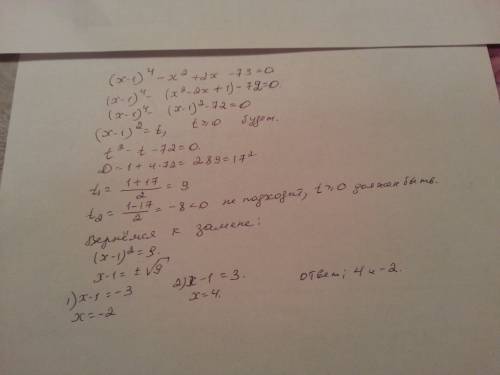 (x-1)⁴ - x² + 2x - 73 = 0
(x-1)⁴ - (x² - 2x + 1) - 72 = 0.
(x-1)⁴ - (x-1)² - 72 = 0
(x-1)² = t, t ≥ 0 будет.
t² - t - 72 = 0.
D = 1 + 4·72 = 289 = 17²
t₁ = (1+17)/2 = 9
t₂ = (1-17)/2 = -8 < 0 не подходит, t ≥ 0 должен быть.
Вернёмся к замене:
(x-1)² = 9.
x-1 = ± √9
1) x-1 = -3 2) x-1 = 3. ответ: 4 и -2.
x = -2 x = 4.